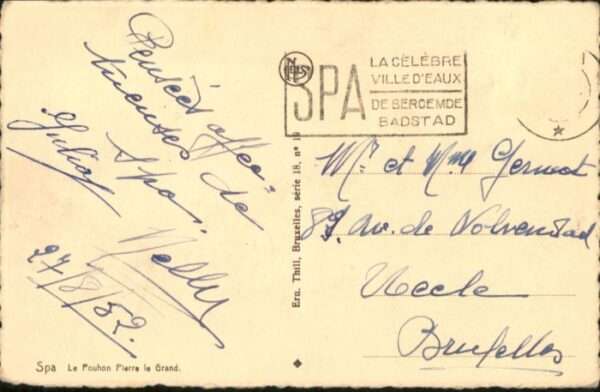 Pensées affec-
tueuses de
Spa.
Nelly
27/8/52.
Spa Le Pouhon Pierre le Grand.
Ern. Thill, Bruxelles, série 18, n° 19
NELS
SPA
LA CÉLÈBRE
VILLE D'EAUX
DE BEROEMDE
BADSTAD
Mr et Mme
Av. de
Uccle
Bruxelles